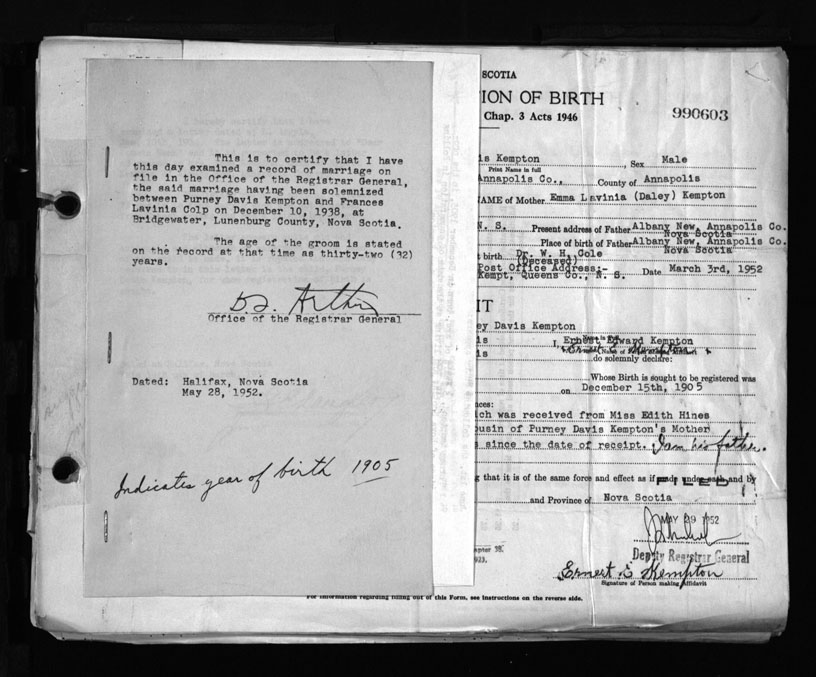 This is to certify that I have
this day examined a record of marriage on
file in the Office of the Registrar General,
the said marriage having been solemnized
between Purney Davis Kempton and Frances
Lavinia Colp on December 10, 1938, at
Bridgewater, Lunenburg County, Nova Scotia.
The age of the groom is stated
on the record at that time as thirty-two (32)
years.
Office of the Registrar General
Dated: Halifax, Nova Scotia
May 28, 1952.
Indicates year of birth 1905
SCOTIA
ION OF BIRTH
Chap. 3 Acts 1946
990603
is Kempton, Sex Male
Print Name in full
Annapolis Co., County of Annapolis
NAME of Mother Emma Lavinia (Daley) Kempton
N. S. Present address of Father Albany New, Annapolis Co.
Nova Scotia
Place of birth of Father Albany New, Annapolis Co.
Nova Scotia
t birth Dr. W. H. Cole
(Deceased)
Post Office Address:-
Kempt, Queens Co., N. S. Date March 3rd, 1952
IT
ey Davis Kempton
is I, Ernest Edward Kempton
is do solemnly declare:
Whose Birth is sought to be registered was
on December 15th, 1905
nces:
ich was received from Miss Edith Hines
ousin of Purney Davis Kempton's Mother
s since the date of receipt. I am his father.
ng that it is of the same force and effect as if made under oath and by
FILED
and Province of Nova Scotia
MAY 29 1952
Deputy Registrar General
apter 38.
1923.
Ernest E Kempton
Signature of Person making Affidavit
For information regarding filling out of this Form, see instructions on the reverse side.